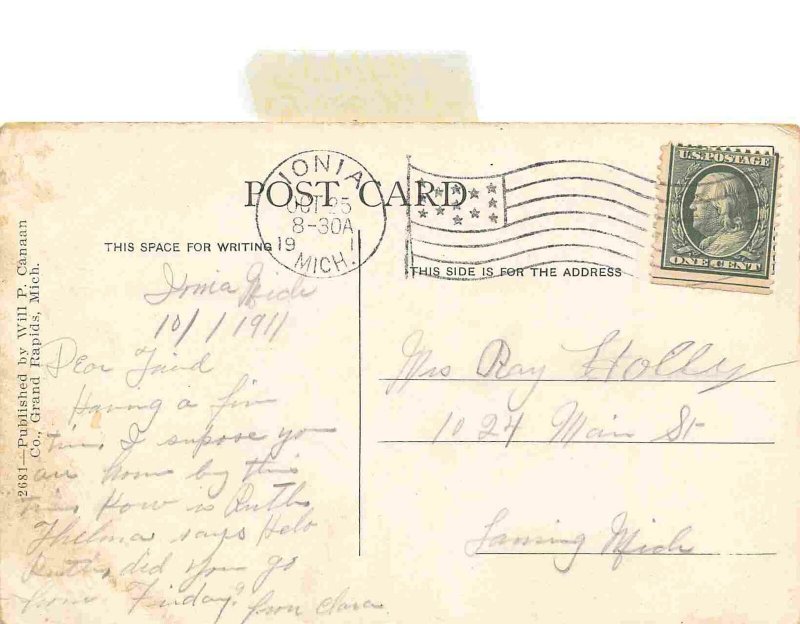 POST CARD
IONIA
OCT 25
8-30A
19 1
MICH.
U.S. POSTAGE
ONE CENT
THIS SPACE FOR WRITING
THIS SIDE IS FOR THE ADDRESS
2681—Published by Will P. Canaan
Co., Grand Rapids, Mich.
Ionia Mich
10/1/1911
Dear Friend
Having a fin
time I supose you
are home by this
time How is Ruth
Thelma says Helo
Ruth, did you go
home Finday? from Clara
Mrs Ray Holley
1024 Main St
Lansing Mich